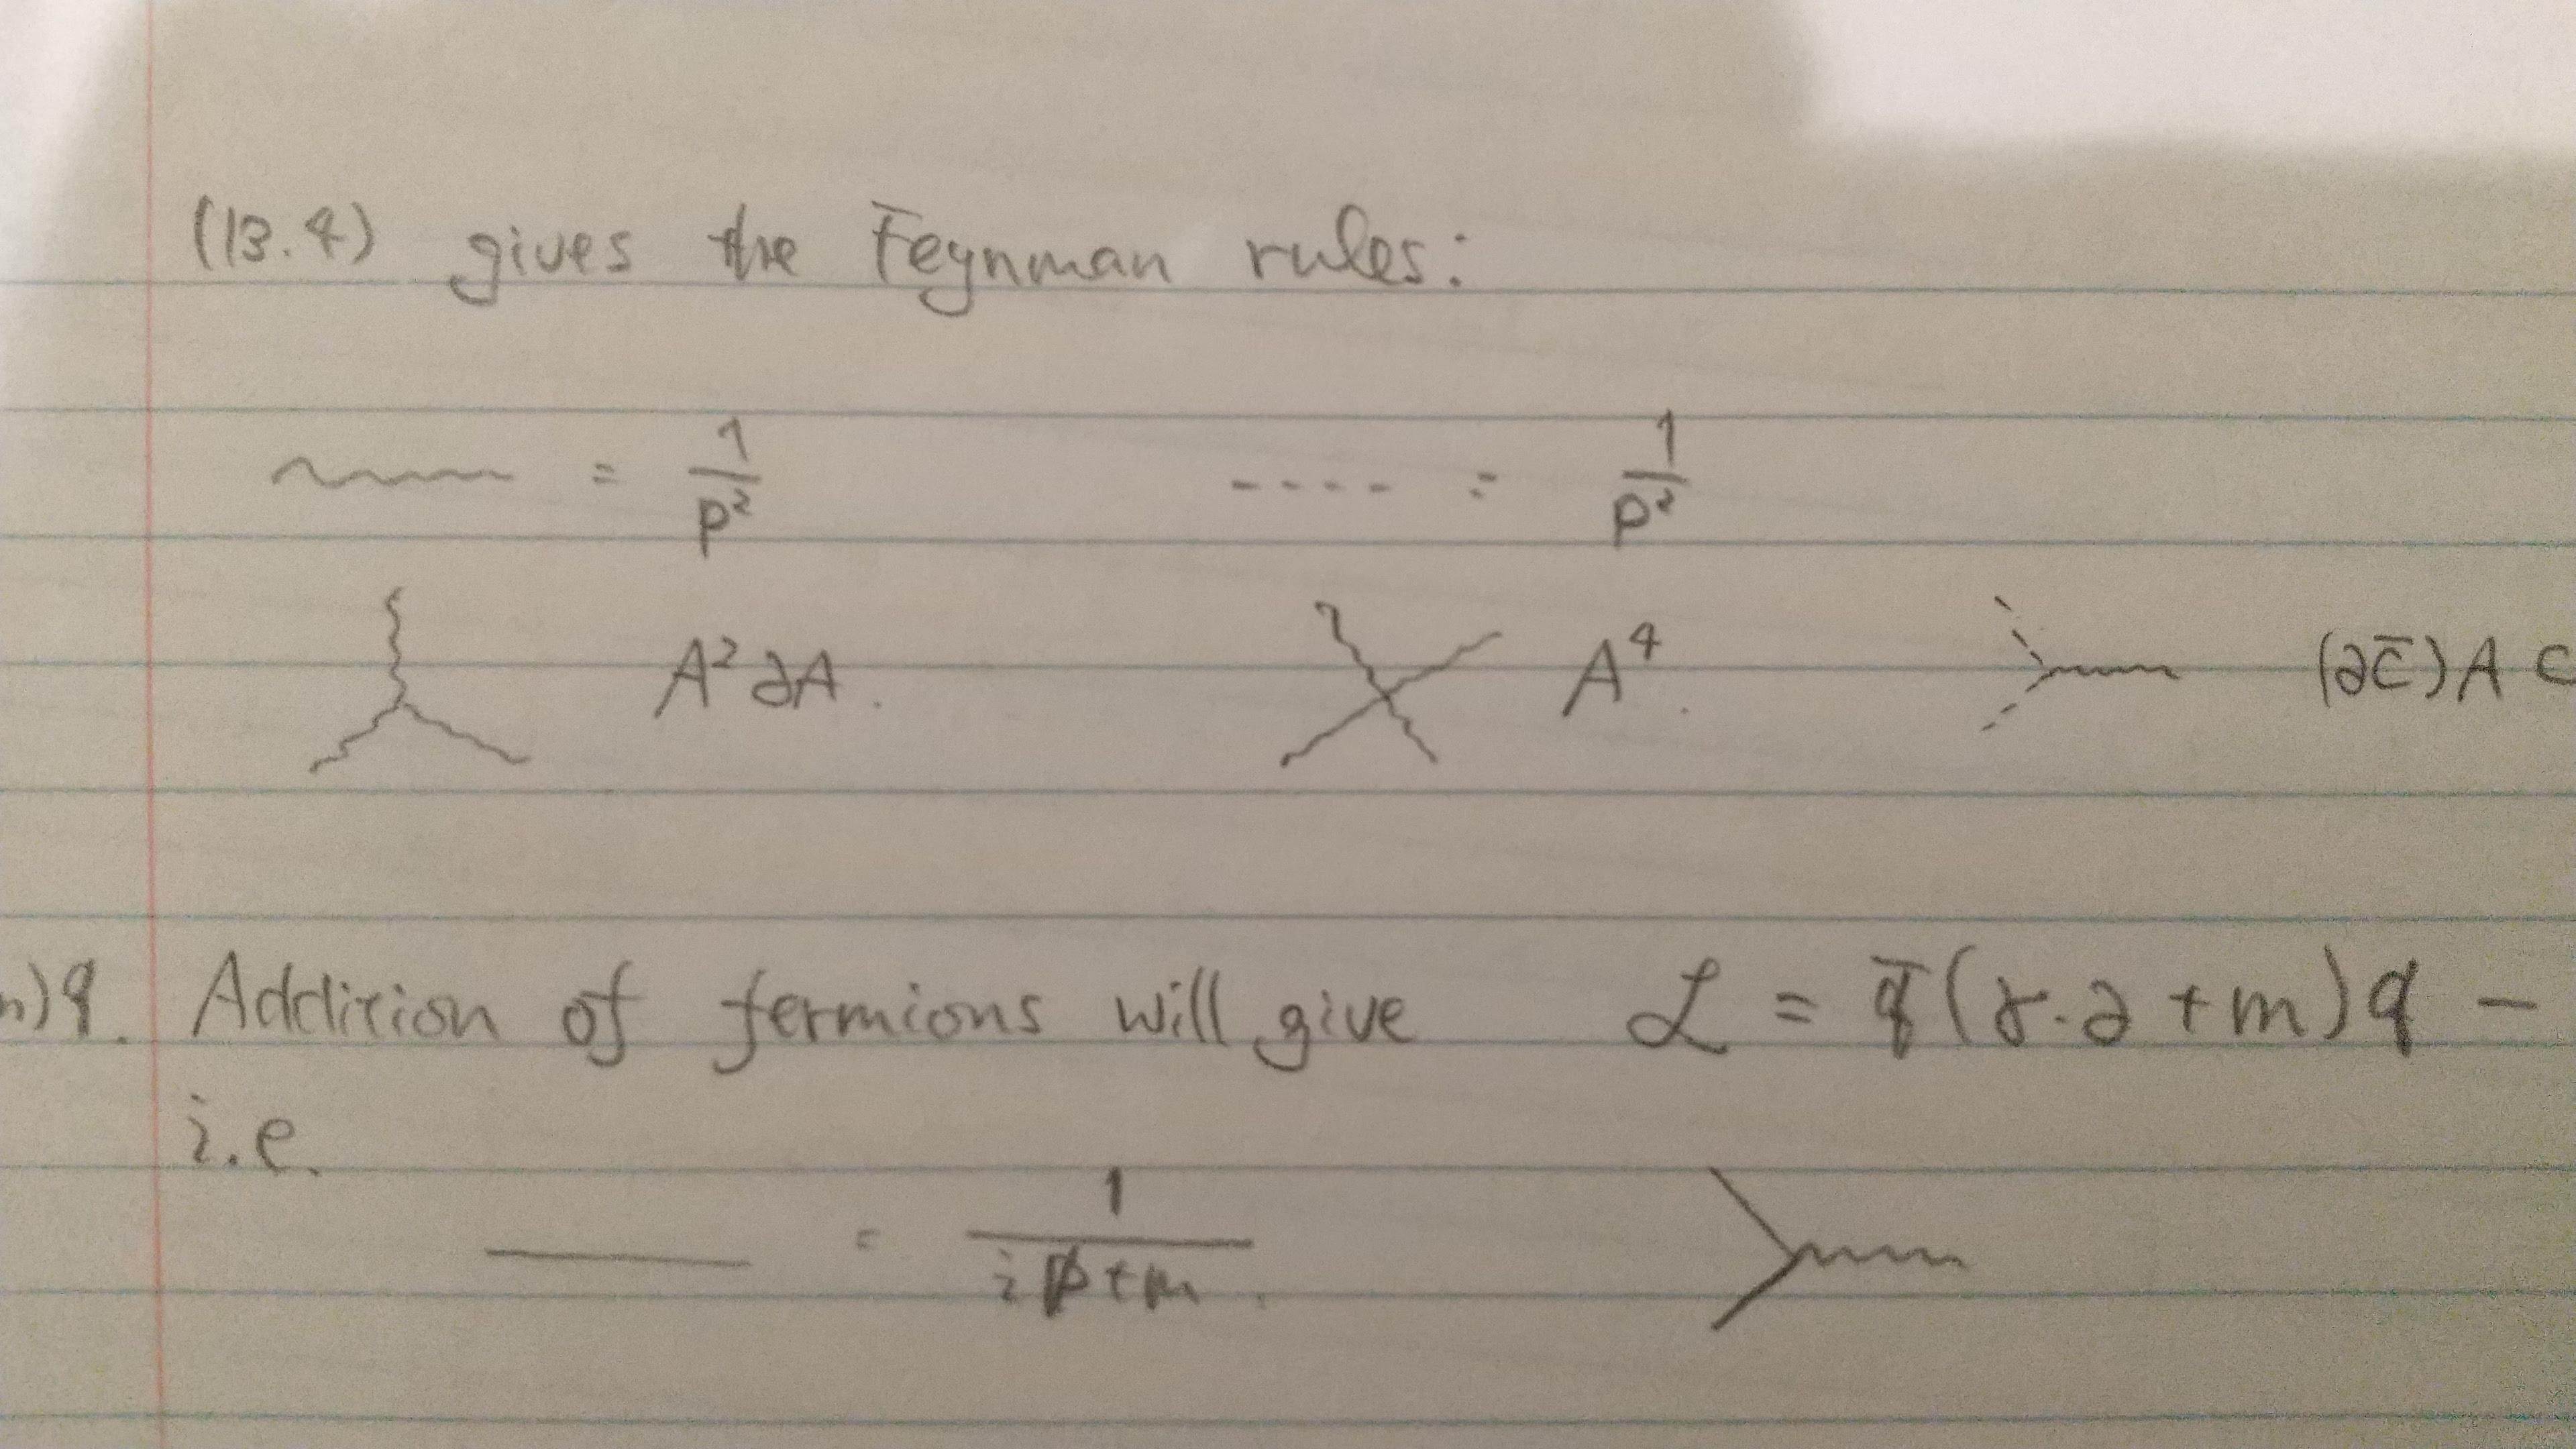 (13.4) gives the Feynman rules:
= 1/p² = 1/p²
A²∂A. A⁴. (∂c̄)A c
)q. Addition of fermions will give ℒ = q̄(γ·∂+m)q −
i.e.
= 1/(i p̸+m).